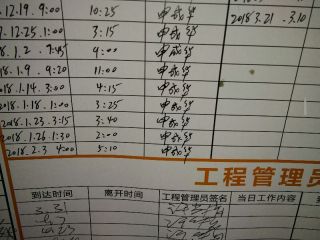 12.19. 9:00 10:25 申成华 2018.3.21. 3.10
7.12.25.1:00 3:15 申成华
018.1.2. 7:45 9:00 申成华
018.1.9. 9:20 11:00 申成华
2018.1.14. 3:00 4:15 申成华
2018.1.18. 1:00 3:25 申成华
2018.1.23. 3:15 3:40 申成华
2018.1.26. 1:30 2:00 申成华
2018.2.3 4:00 5:10 申成华
工程管理员
到达时间 离开时间 工程管理员签名 当日工作内容
3.31